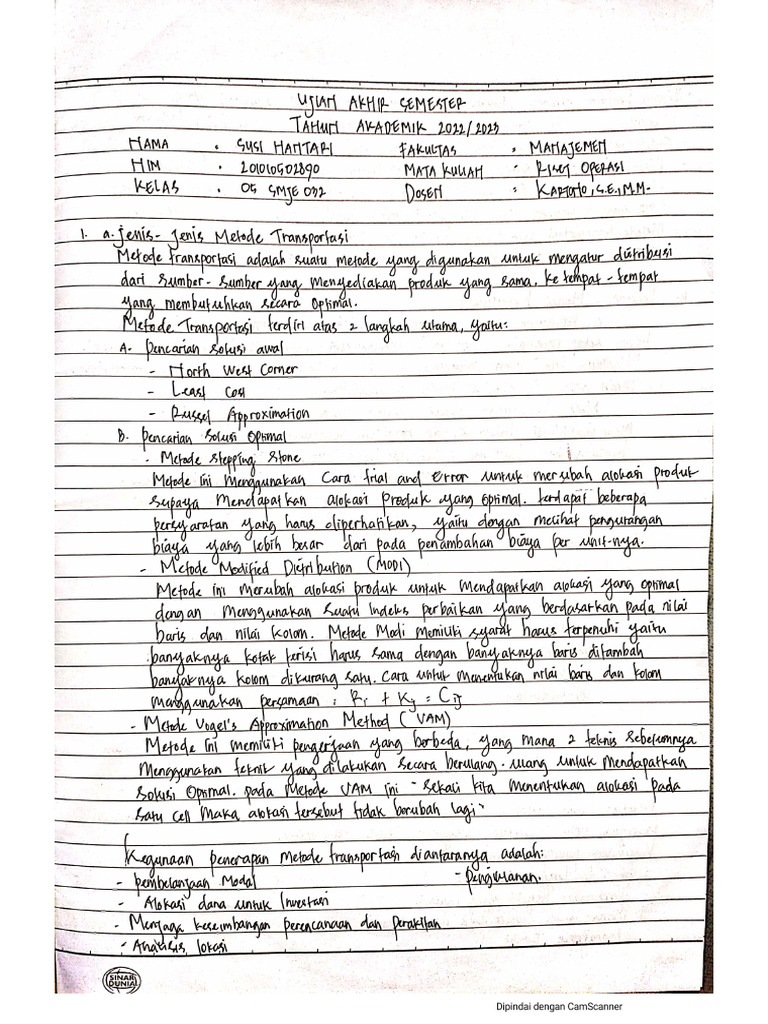 UJIAN AKHIR SEMESTER
TAHUN AKADEMIK 2022/2023
NAMA : SUSI HANTARI FAKULTAS : MANAJEMEN
NIM : 201010502890 MATA KULIAH : RISET OPERASI
KELAS : 05 SMJE 032 DOSEN : KARTONO, S.E., M.M.
1. a. Jenis - Jenis Metode Transportasi
Metode transportasi adalah suatu metode yang digunakan untuk mengatur distribusi
dari sumber - sumber yang menyediakan produk yang sama, ke tempat - tempat
yang membutuhkan secara optimal.
Metode Transportasi terdiri atas 2 langkah utama, yaitu:
A. Pencarian solusi awal
- North West Corner
- Least Cost
- Russel Approximation
B. Pencarian Solusi Optimal
- Metode Stepping Stone
Metode ini Menggunakan Cara trial and Error untuk merubah alokasi produk
supaya Mendapatkan alokasi produk yang optimal. terdapat beberapa
persyaratan yang harus diperhatikan, yaitu dengan melihat pengurangan
biaya yang lebih besar dari pada penambahan biaya per unit-nya.
- Metode Modified Distribution (MODI)
Metode ini merubah alokasi produk untuk Mendapatkan alokasi yang optimal
dengan Menggunakan Suatu Indeks perbaikan yang berdasarkan pada nilai
baris dan nilai kolom. Metode Modi memiliki syarat harus terpenuhi yaitu
banyaknya kotak terisi harus sama dengan banyaknya baris ditambah
banyaknya kolom dikurang satu. Cara untuk menentukan nilai baris dan kolom
menggunakan persamaan : Ri + Kj = Cij
- Metode Vogel's Approximation Method (VAM)
Metode Ini memiliki pengerjaan yang berbeda, yang mana 2 teknis sebelumnya
menggunakan teknik yang dilakukan secara berulang-ulang untuk Mendapatkan
Solusi Optimal. pada Metode VAM ini - sekali kita menentukan alokasi pada
satu cell maka alokasi tersebut tidak berubah lagi-
Kegunaan penerapan Metode transportasi diantaranya adalah:
- pembelanjaan Modal - pengiriman.
- Alokasi dana untuk Investasi
- Menjaga keseimbangan perencanaan dan perakitan
- Analisis lokasi
SINAR DUNIA
Dipindai dengan CamScanner